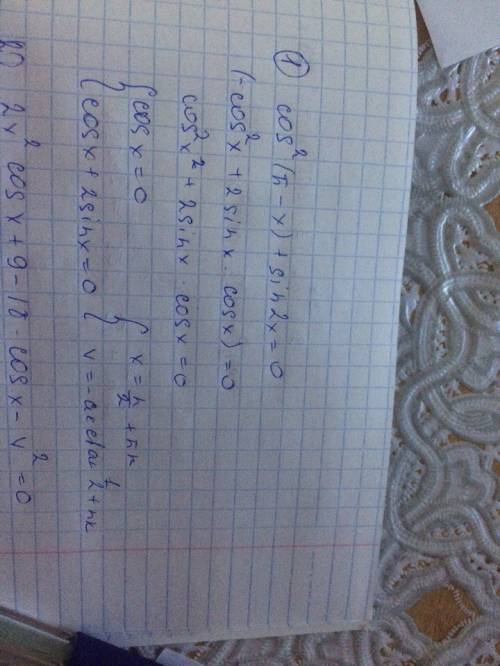 ① cos²(π - x) + sin2x = 0
(-cos²x + 2sinx · cosx) = 0
cos²x² + 2sinx · cosx = 0
{ cosx = 0 { x = π/2 + πk
{ cosx + 2sinx = 0 { x = -arctg 1/2 + πk
2x² cosx + 9 - 18 · cosx - x² = 0